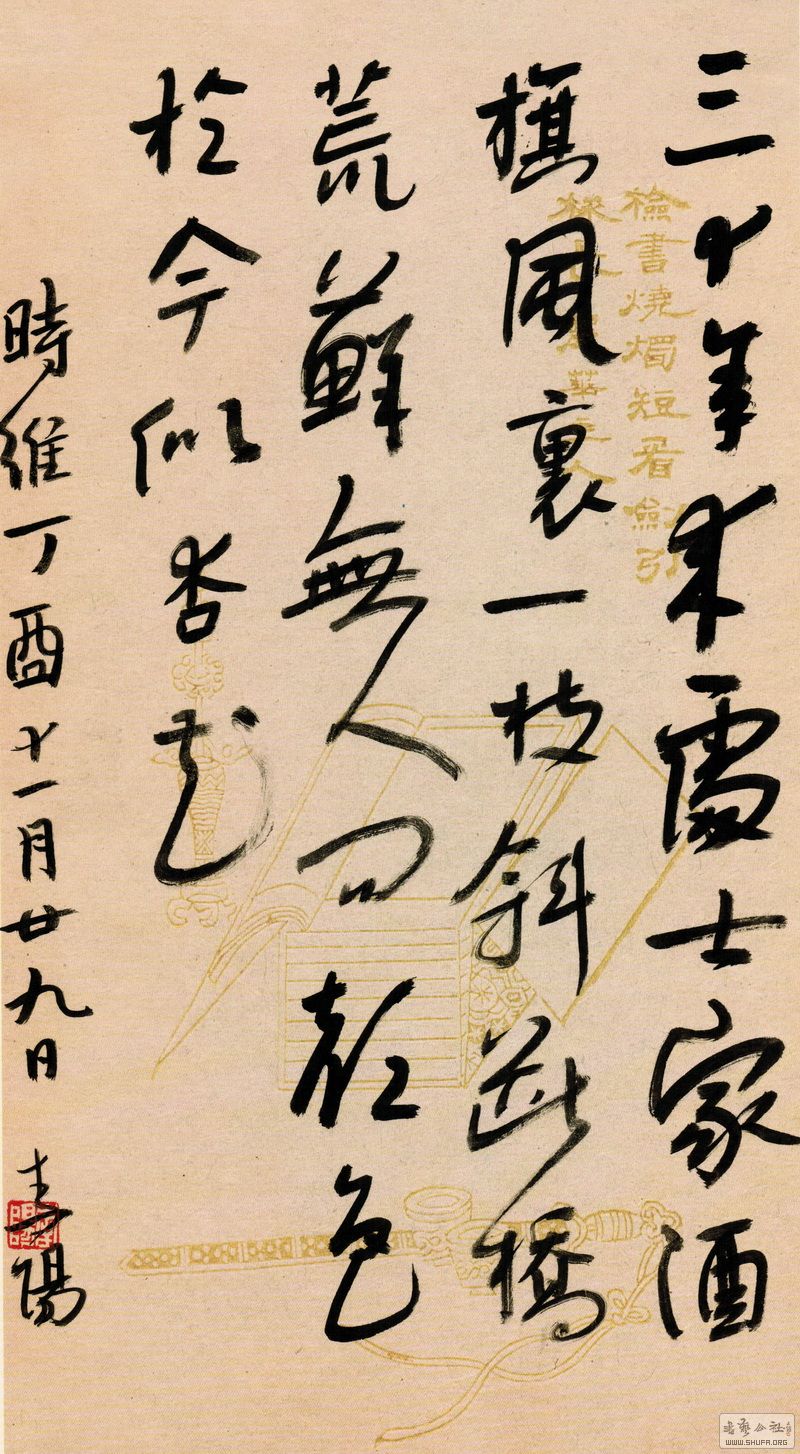 三十年來處士家酒
旗風裏一枝斜斷橋
荒蘚無人问顏色
於今似杏花
時維丁酉十一月廿九日
陽
檢書燒燭短看劍引
杯長
书艺公社
WWW.SHUFA.ORG